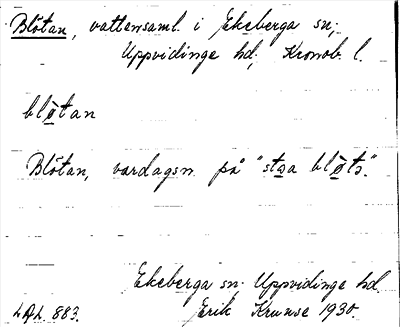 Blötan, vattensaml. i Ekeberga sn;
Uppvidinge hd; Kronob. l.
blötan
Blötan, vardagsn. på "stoa blöts."
Ekeberga sn. Uppvidinge hd.
LAL 883. Erik Krunse 1930.